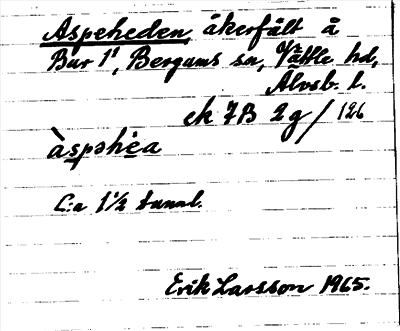 Aspeheden, åkerfält å
Bur 1¹, Bergums sn, Vättle hd,
Älvsb. l.
ek 7B 2g / 126
àspəhèa
C:a 1½ tunnl.
Erik Larsson 1965.